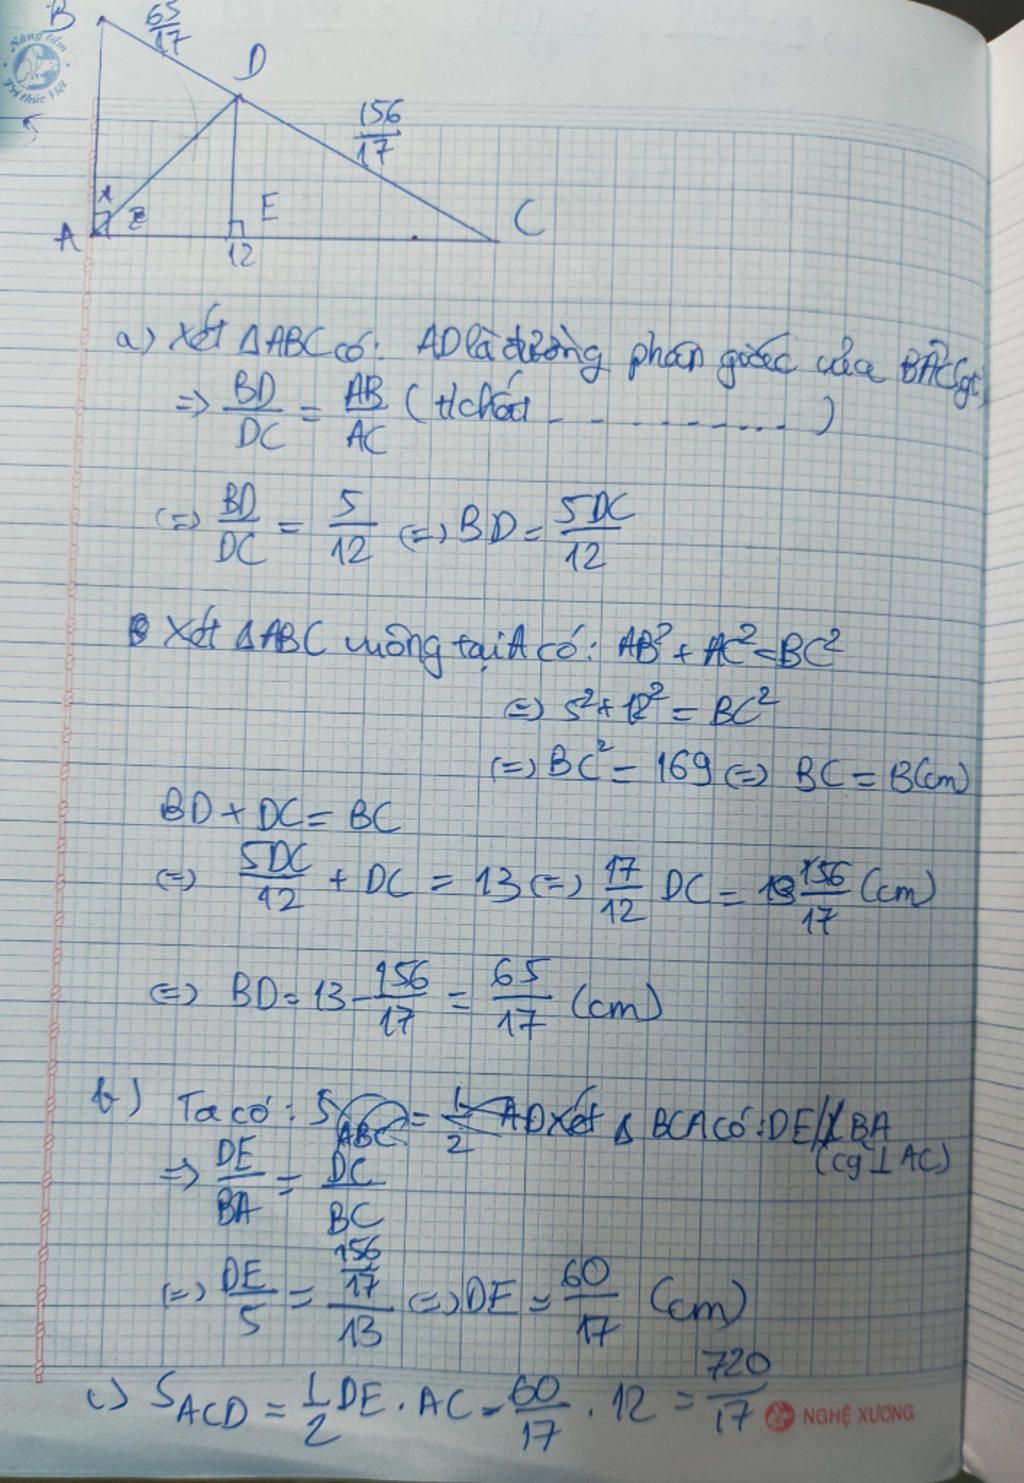 B
65/17
Nâng tầm
Tri thức Việt
D
156/17
1
2
E
A
C
12
a) Xét ΔABC có: AD là đường phân giác của BAC (gt)
=> BD/DC = AB/AC (t/chất - - - - - - - -)
(=) BD/DC = 5/12 (=) BD = 5DC/12
Xét ΔABC vuông tại A có: AB² + AC² = BC²
(=) 5² + 12² = BC²
(=) BC² = 169 (=) BC = 13(cm)
BD + DC = BC
(=) 5DC/12 + DC = 13 (=) 17/12 DC = 156/17 (cm)
(=) BD = 13 - 156/17 = 65/17 (cm)
b) Ta có: S ABC = 1/2 AD Xét Δ BCA có: DE // BA
(cg ⊥ AC)
=> DE/BA = DC/BC
(=) DE/5 = 156/17/13 (=) DE = 60/17 (cm)
c) S ACD = 1/2 DE . AC = 60/17 . 12 = 720/17
NGHỆ XƯƠNG